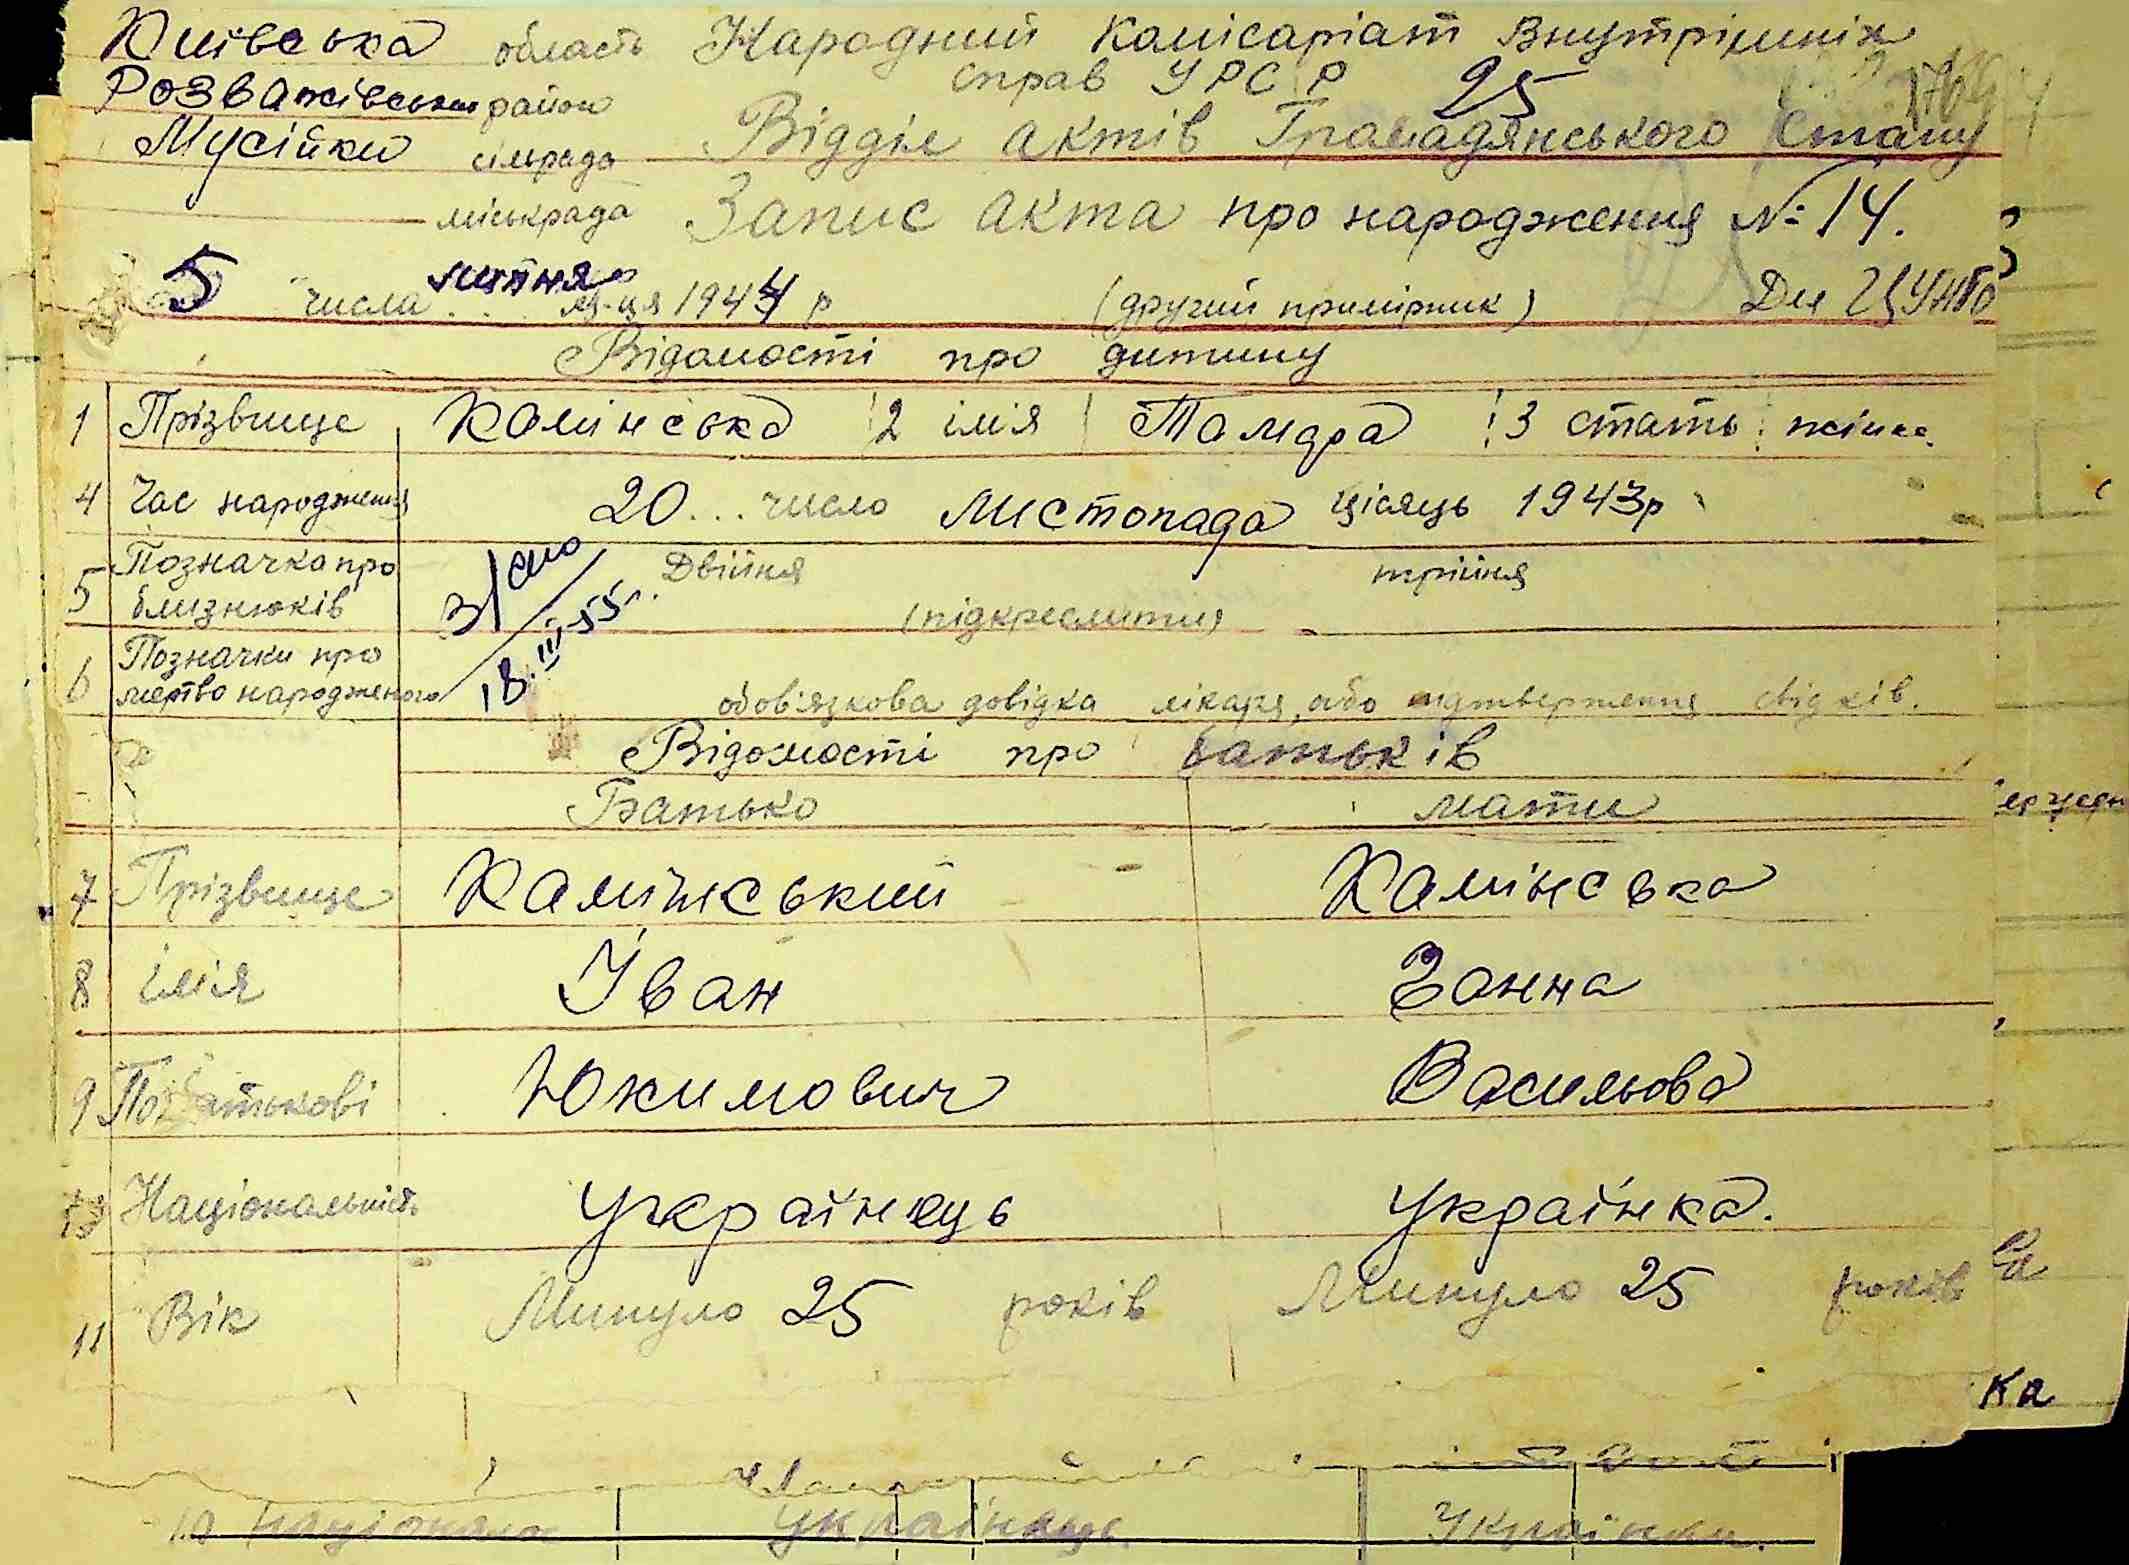 Київська область Народний Комісаріат Внутрішніх
Розважівський район справ УРСР 25
Мусійки сільрада Відділ актів Громадянського Стану
міськрада Запис акта про народження № 14.
5 числа липня м-ця 1944 р (другий примірник) Для ЦУНГО
Відомості про дитину
1 Прізвище Камінська 2 імія Тамара 3 стать жіноч.
4 Час народження 20... число листопада місяць 1943р
5 Позначка про близнюків Двійня трійня
(підкреслити)
18.III-55
6 Позначки про мертво народженого обов'язкова довідка лікаря, або підтвердження свідків.
Відомості про батьків
Батько мати
7 Прізвище Камінський Камінська
8 імія Іван Ганна
9 По батькові Юхимович Васильова
Національність Українець Українка.
11 Вік Минуло 25 років Минуло 25 років
ка
10 Українець. Українка.